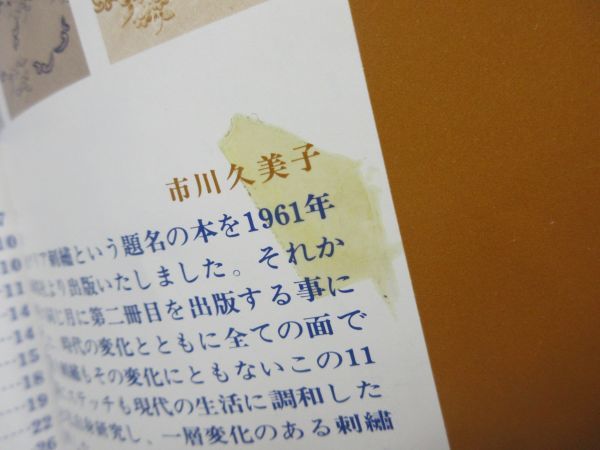 市川久美子
リア刺繍という題名の本を1961年
より出版いたしました。それか
同じ月に第二冊目を出版する事に
時代の変化とともに全ての面で
もその変化にともないこの11
ステッチも現代の生活に調和した
研究し、一層変化のある刺繍
7
10
10
11
14
14
15
18
19
22
26